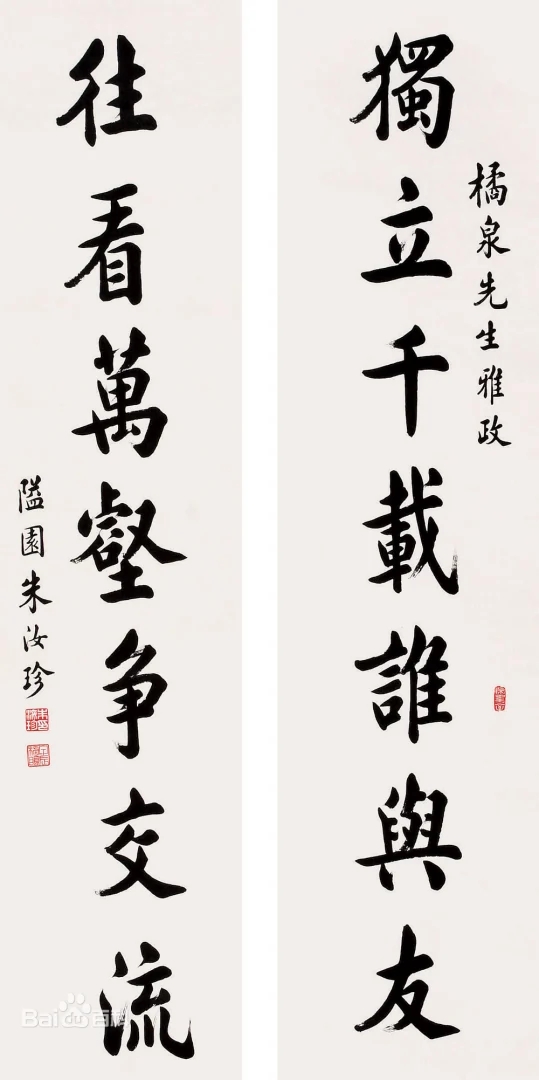 橘泉先生雅政
獨立千載誰與友
往看萬壑争交流
隘園朱汝珍
Bai百科